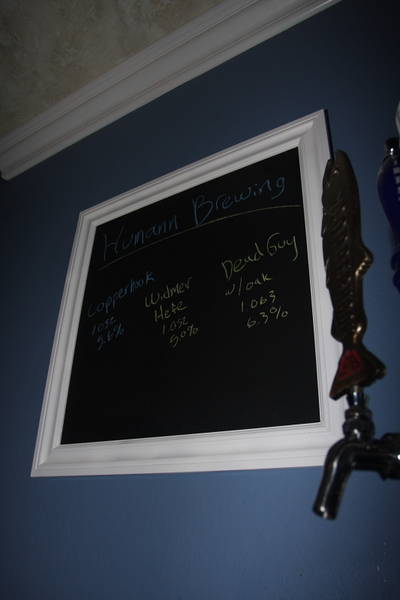 Humann Brewing
Copperhook
1.052
5.6%
Widmer
Hefe
1.052
5.0%
Dead Guy
w/oak
1.063
6.3%